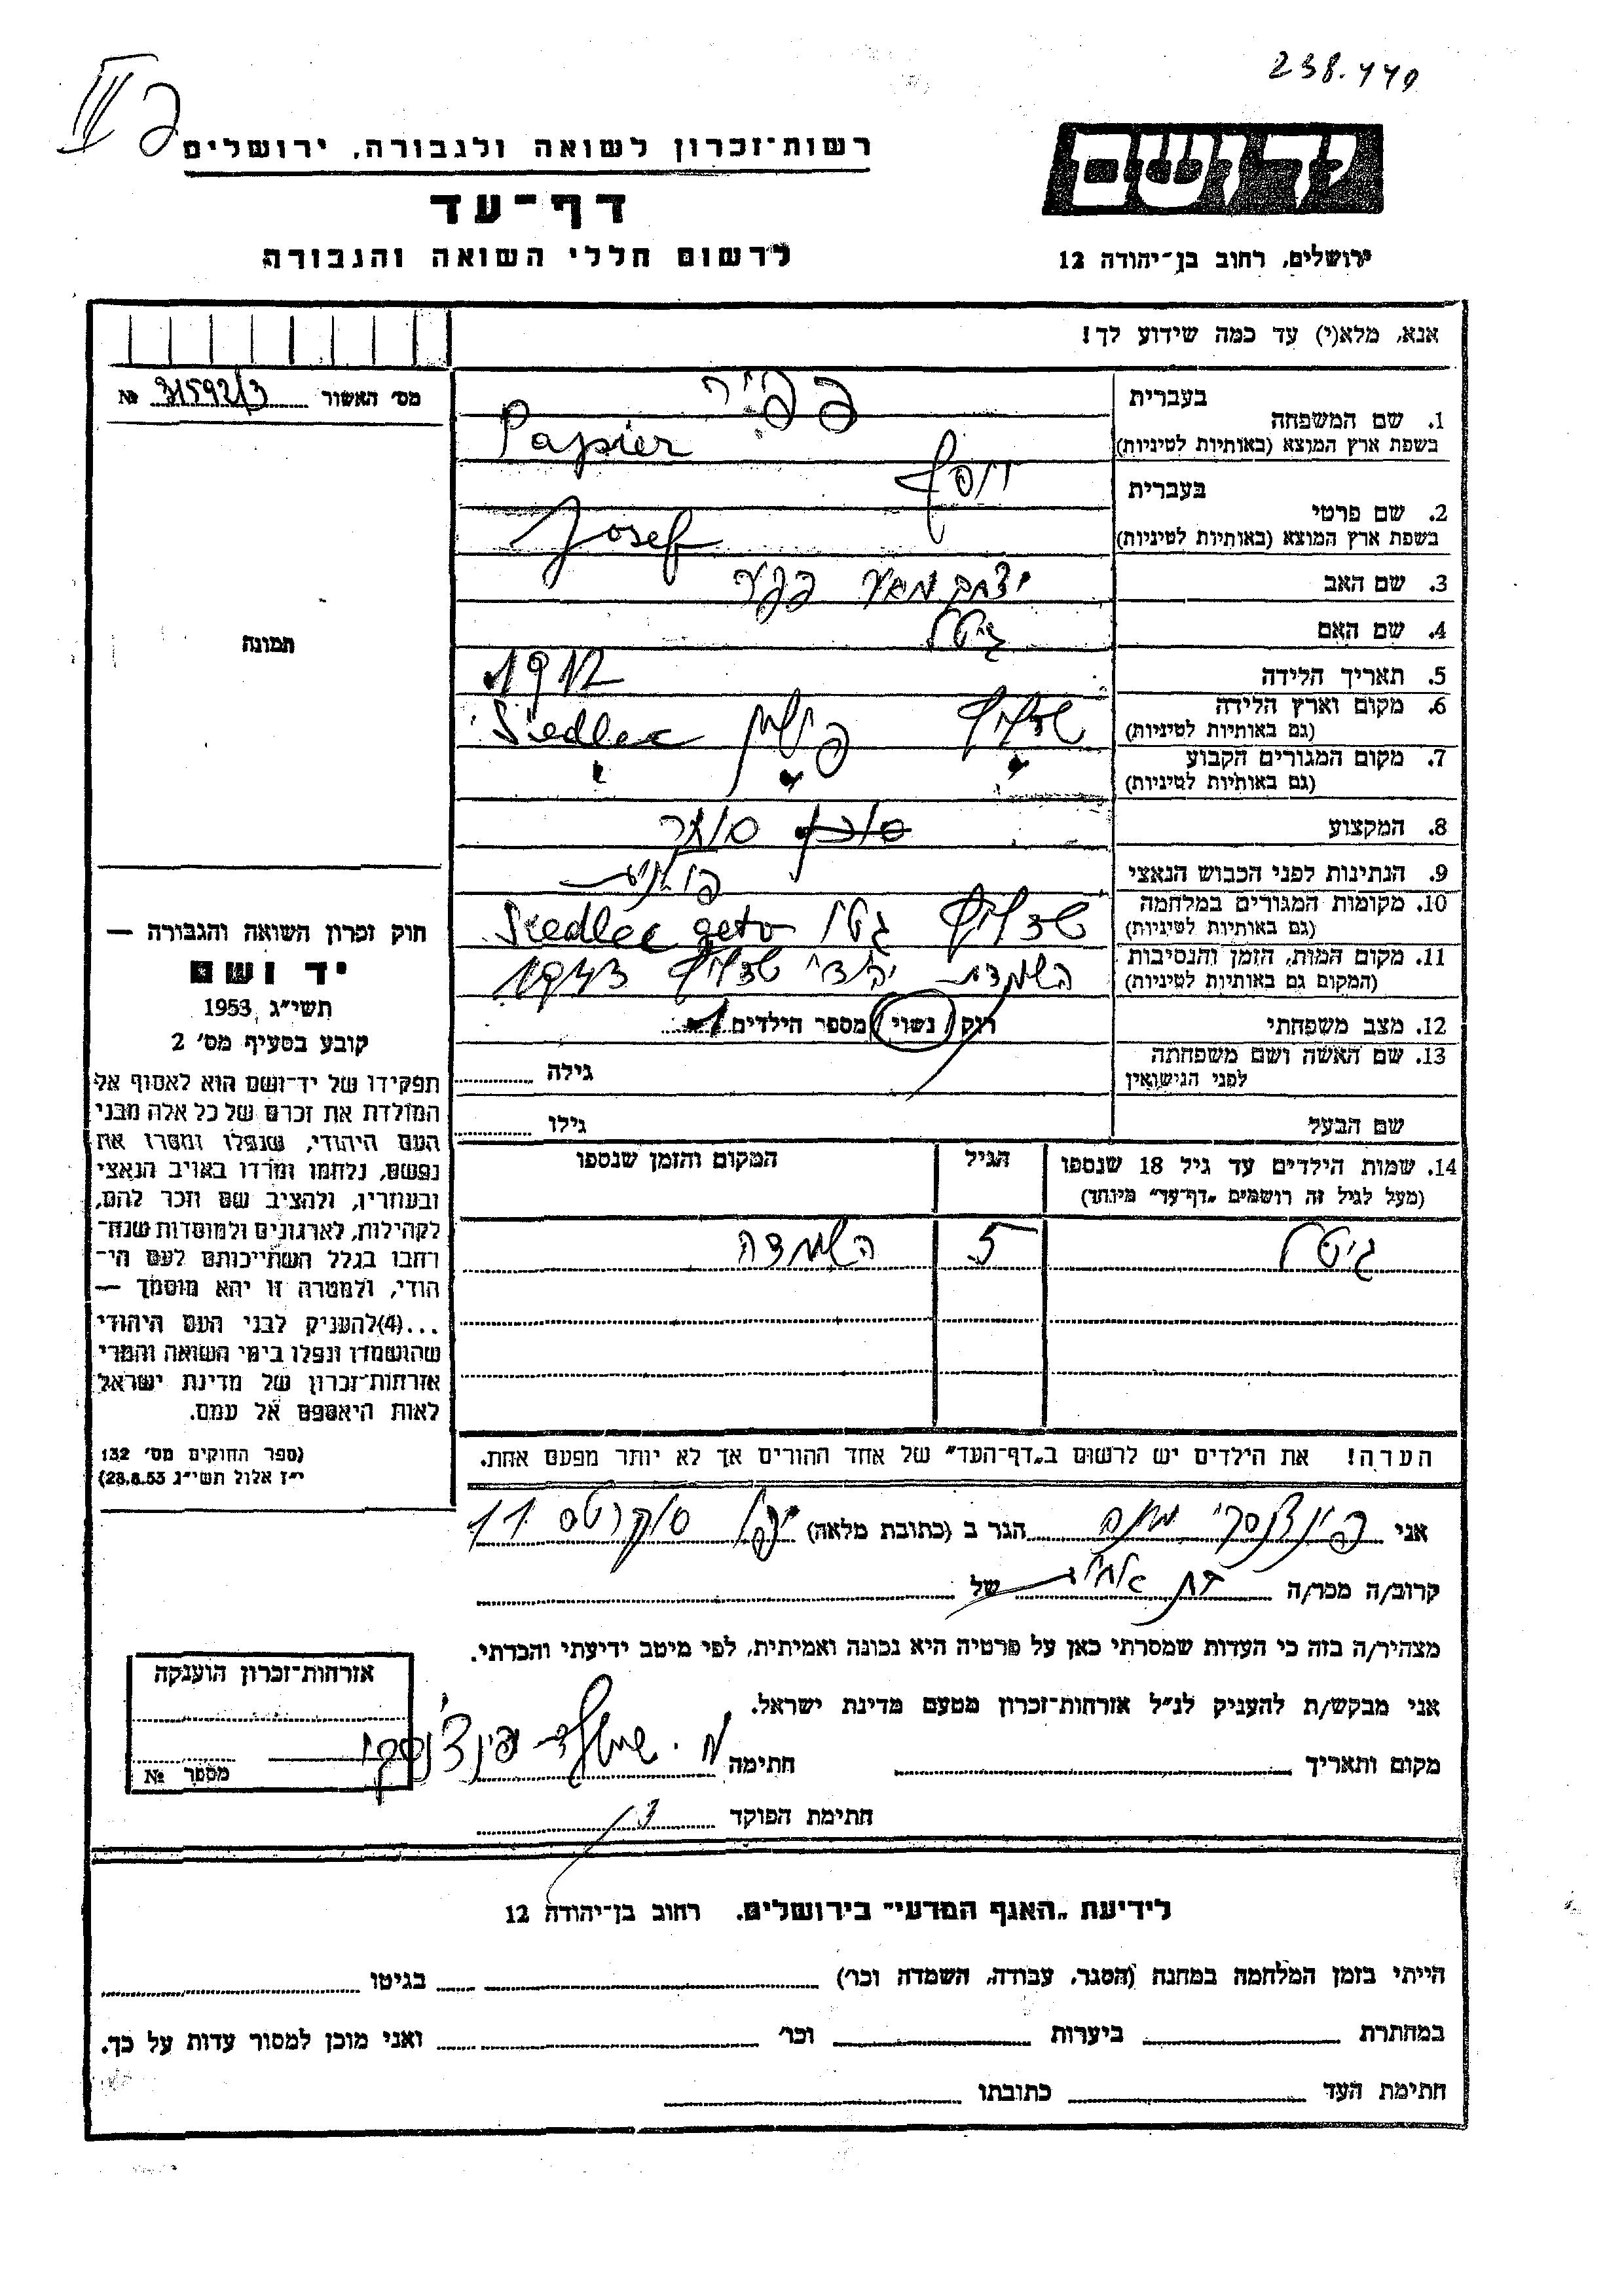 238.440
פ III
רשות־זכרון לשואה ולגבורה, ירושלים
דף־עד
לרשום חללי השואה והגבורה
יד ושם
ירושלים, רחוב בן־יהודה 12
אנא, מלא(י) עד כמה שידוע לך!
מס׳ האשור 31592/3 №
תמונה
1. שם המשפחה
בעברית פפיר
בשפת ארץ המוצא (באותיות לטיניות) Papier
2. שם פרטי
בעברית יוסף
בשפת ארץ המוצא (באותיות לטיניות) Josef
3. שם האב יצחק מאיר פפיר
4. שם האם גיטל
5. תאריך הלידה 1912
6. מקום וארץ הלידה (גם באותיות לטיניות) שדליץ פולין Siedlec
7. מקום המגורים הקבוע (גם באותיות לטיניות) " " "
8. המקצוע סוחר
9. הנתינות לפני הכבוש הנאצי פולנית
10. מקומות המגורים במלחמה (גם באותיות לטיניות) שדליץ גטו Siedlec geto
11. מקום המות, הזמן והנסיבות (המקום גם באותיות לטיניות) השמדת יהודי שדליץ 1943
12. מצב משפחתי רוק / נשוי / מספר הילדים 1
13. שם האשה ושם משפחתה לפני הנישואין גילה
שם הבעל גילו
14. שמות הילדים עד גיל 18 שנספו הגיל המקום והזמן שנספו
(מעל לגיל זה רושמים „דף־עד” מיוחד)
גיטל 5 השמדה
הערה! את הילדים יש לרשום ב„דף־העד” של אחד ההורים אך לא יותר מפעם אחת.
חוק זכרון השואה והגבורה —
יד ושם
תשי״ג 1953
קובע בסעיף מס׳ 2
תפקידו של יד־ושם הוא לאסוף אל
המולדת את זכרם של כל אלה מבני
העם היהודי, שנפלו ומסרו את
נפשם, נלחמו ומרדו באויב הנאצי
ובעוזריו, ולהציב שם וזכר להם,
לקהילות, לארגונים ולמוסדות שנח־
רבו בגלל השתייכותם לעם הי־
הודי, ולמטרה זו יהא מוסמך —
...(4)להעניק לבני העם היהודי
שהושמדו ונפלו בימי השואה והמרי
אזרחות־זכרון של מדינת ישראל
לאות היאספם אל עמם.
(ספר החוקים מס׳ 132
י״ז אלול תשי״ג 28.8.53)
אני פינצ'נסקי הגר ב (כתובת מלאה) יפו סוקרטס 11
קרוב/ה מכר/ה בת אחיו של
מצהיר/ה בזה כי העדות שמסרתי כאן על פרטיה היא נכונה ואמיתית, לפי מיטב ידיעתי והכרתי.
אני מבקש/ת להעניק לנ״ל אזרחות־זכרון מטעם מדינת ישראל.
מקום ותאריך חתימה מ. פינצ'נסקי
חתימת הפוקד
אזרחות־זכרון הוענקה
מספר №
לידיעת „האגף המדעי” בירושלים. רחוב בן־יהודה 12
הייתי בזמן המלחמה במחנה (הסגר, עבודה, השמדה וכר׳) בגיטו
במחתרת ביערות וכר׳ ואני מוכן למסור עדות על כך.
חתימת העד כתובתו